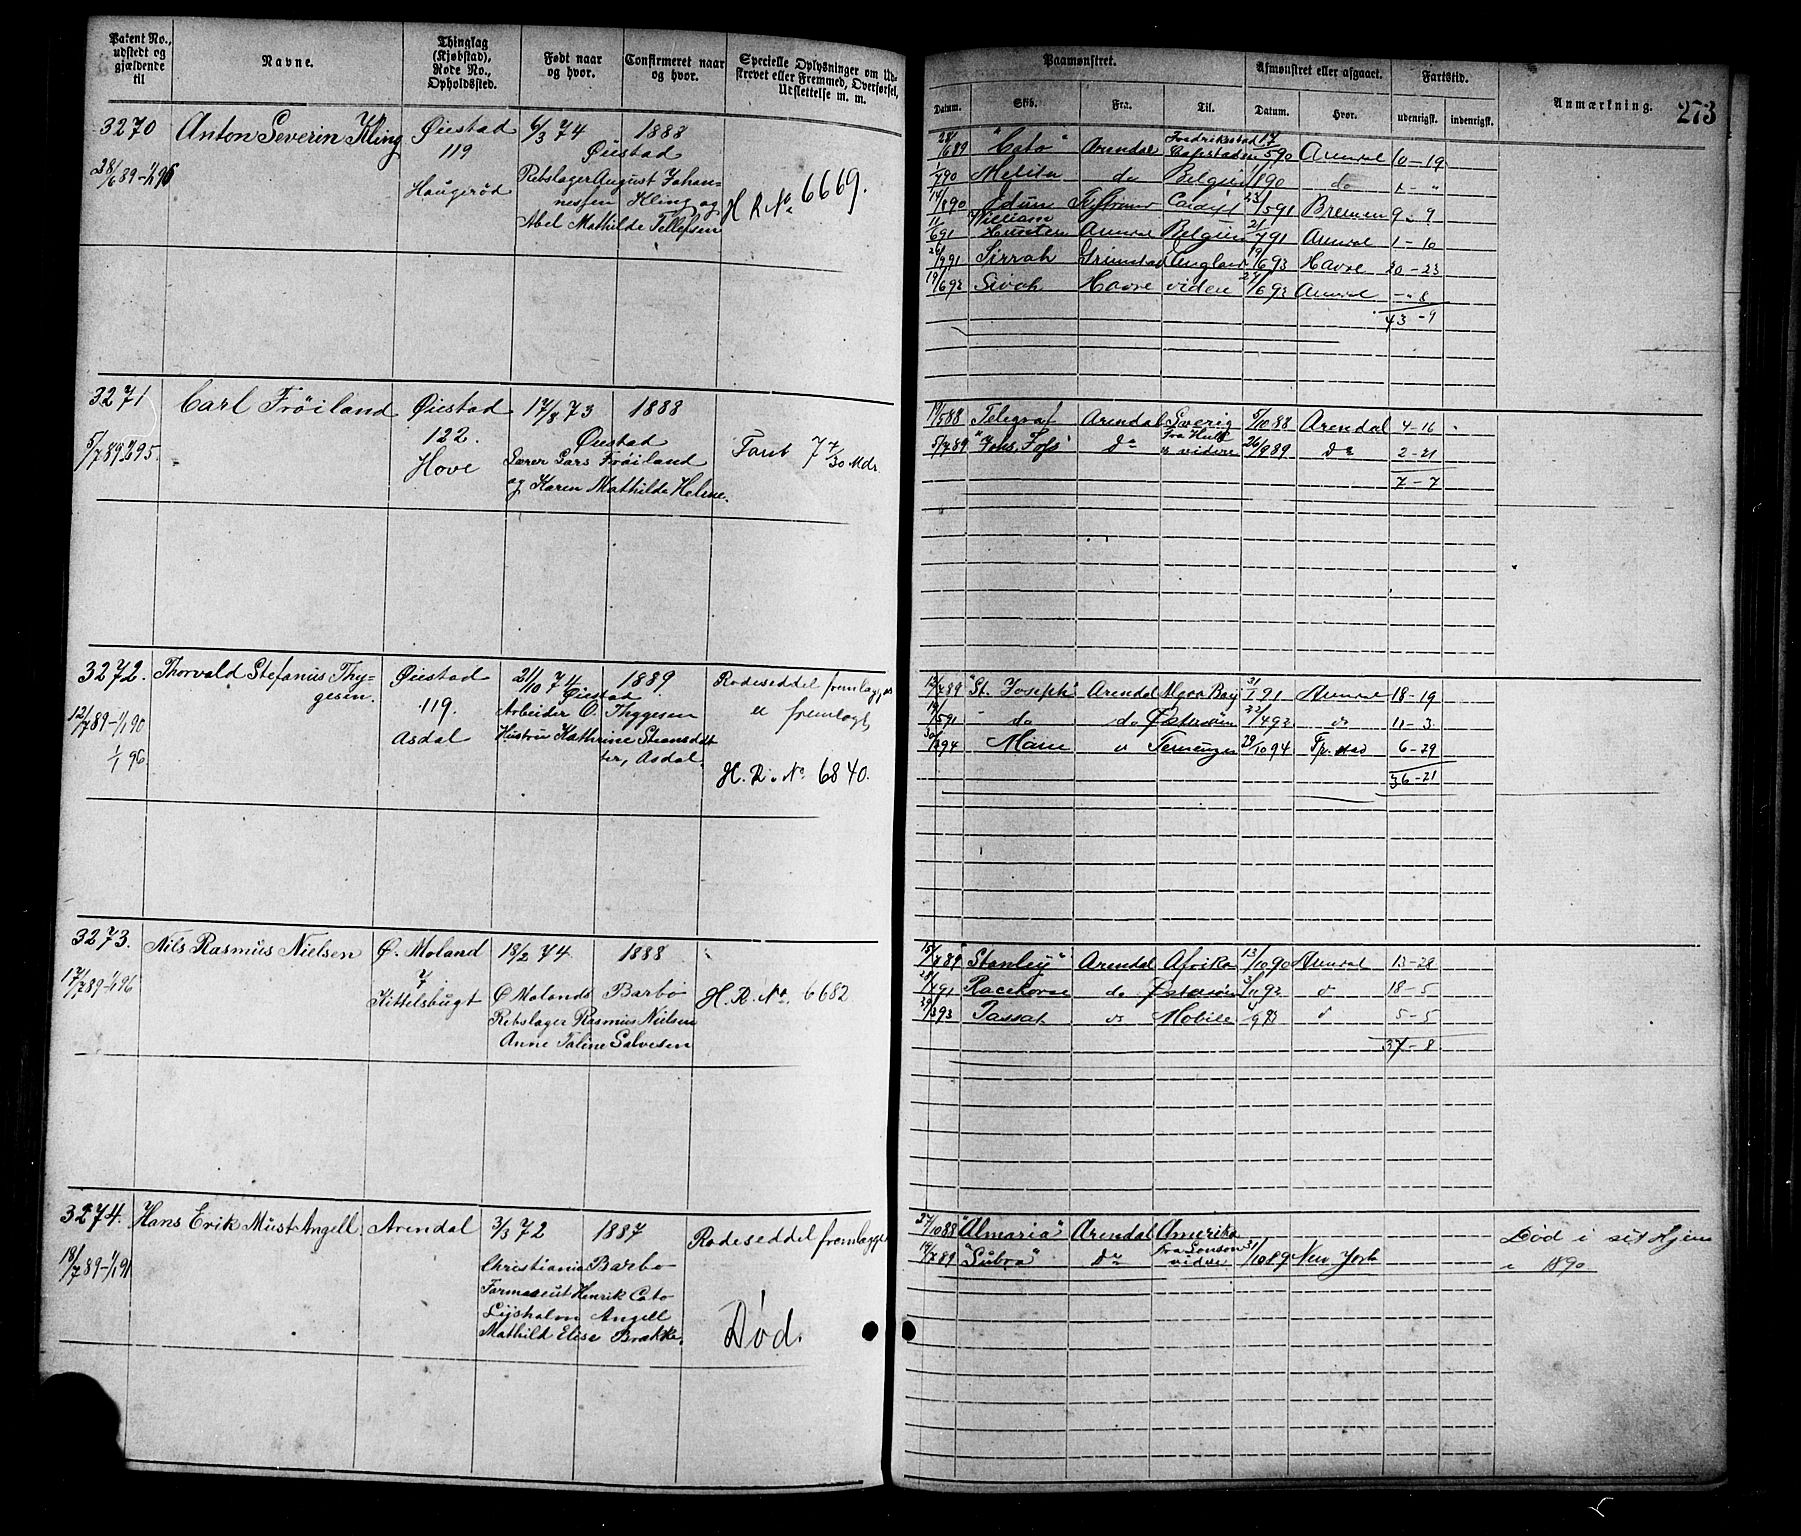 Patent No., udstedt og gjældende til
Navne.
Thinglag (Kjøbstad), Rode No., Opholdssted.
Født naar og hvor.
Confirmeret naar og hvor.
Specielle Oplysninger om Udskrevet eller Fremmed, Overførsel, Udslettelse m. m.
Paamønstret.
Afmønstret eller afgaaet.
Fartstid.
Anmærkning.
273
Datum.
Skib.
Fra.
Til.
Datum.
Hvor.
udenrigsk.
indenrigsk.
3270
Anton Severin Kling
Øiestad
119
Haugerød
28/6 89-1/1 96
6/3 74
1888
Øiestad
Rebslager August Johan-
nessen Kling og
Abel Mathilde Tellefsen
H R No 6669.
28/6 89 "Cato" Arendal Fredrikstad 17/5 90 Arendal 10-19
1/7 90 Melita do Belgien do
Idun Cardiff 23/5 91 Bremen 9-9
11/6 91 William Hunter Arendal Belgien 21/7 91 Arendal 1-10
26/9 91 Sirrah Grimstad England 19/6 93 Havre 20-23
19/6 93 Sirah Havre videre 27/6 93 Arendal -"8
43-9
3271
Carl Frøiland
Øiestad
122.
Hove
5/7 89 1/1 95.
17/8 73
1888
Øiestad
Lærer Lars Frøiland
og Karen Mathilde Helene.
Fart 7 7/30 Mdr.
19/5 88 Telegraf Arendal Sverig 5/10 88 Arendal 4-16
5/7 89 "Johs. Foss" do fra Hull videre 26/9 89 do 2-21
7-7
3272.
Thorvald Stefanus Thy-
gesen.
Øiestad
119.
Asdal
12/7 89-1/1 90
1/1 96.
21/10 74
1889.
Øiestad
Arbeider O. Thygesen
Hustru Kathrine Steansdat
ter, Asdal.
Rodeseddel fremlægges
er fremlagt,
H. R. No 6840.
12/7 89 "St. Joseph" Arendal Algoa Bay 31/1 91 Arendal 18-19
19/5 91 do do Østersøen 22/4 92 do 11-3
30/3 94 29/10 94 Fr.stad 6-29
36-21
3273.
Nils Rasmus Nielsen
Ø. Moland
7
Kittelsbugt
17/7 89-1/1 96
18/2 74
1888
Ø Molands Barbo
Rebslager Rasmus Nielsen
Anne Taline Salvesen
H. R. No. 6682
15/7 89 "Stanley" Arendal Afrika 13/10 90 Arendal 13-28
28/4 91 Racehorse do Østersøen 18-5
29/3 93 Passat do Mobile 5-5
37-8
3274.
Hans Erik Must Angell.
Arendal
18/7 89-1/1 91
3/3 72
1887
Christiania Barbo
Farmaceut Henrik Cato
Lysholm Angell
Mathild Elise Brække.
Rodeseddel fremlægges
Død.
27/10 88 "Almaria" Arendal Amerika
19/7 89 "Subra" do fra London videre 31/10 89 New York
Død i sit Hjem
1890